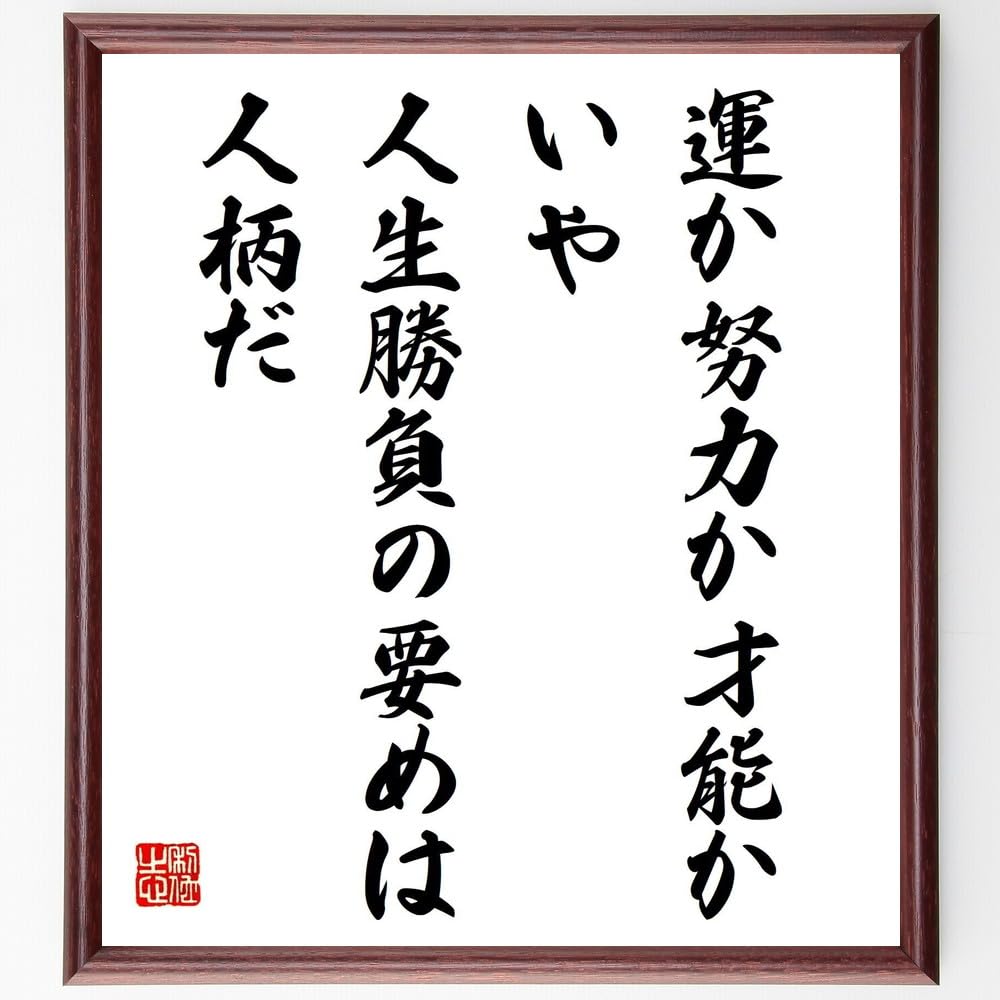 運か努力か才能か
いや
人生勝負の要めは
人柄だ